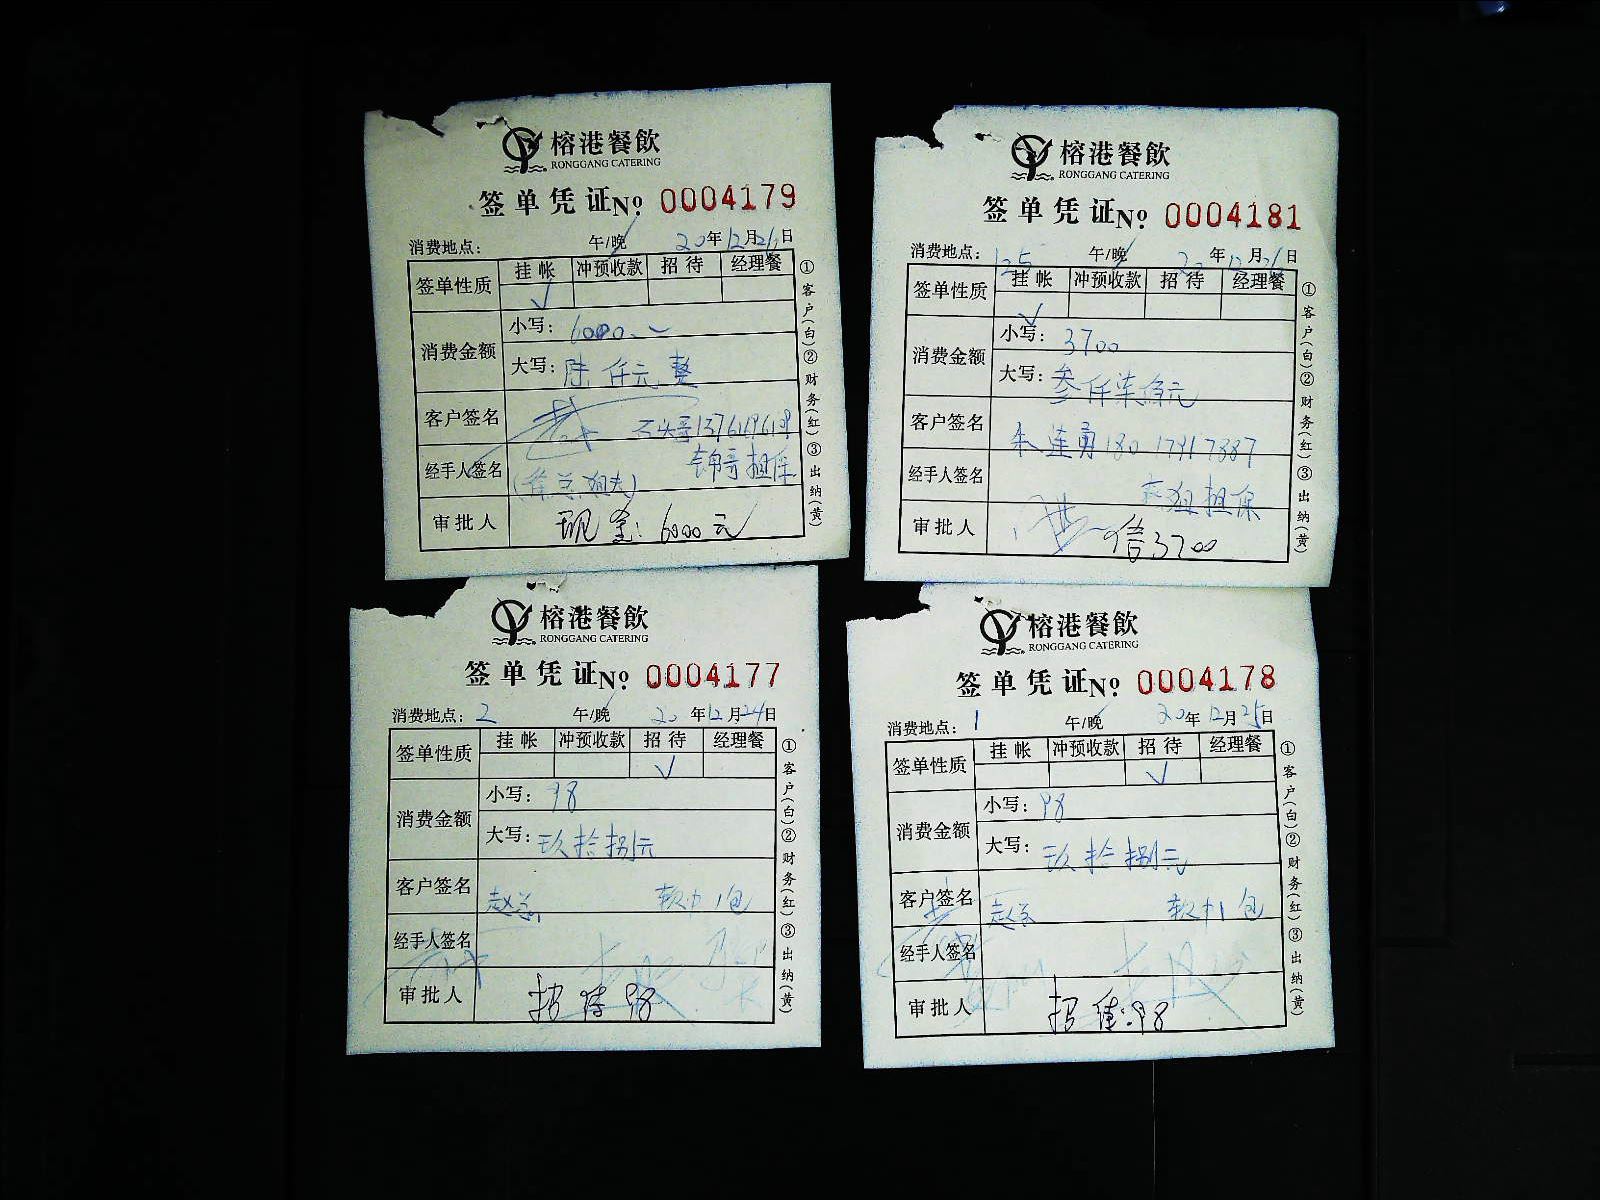 榕港餐飲
RONGGANG CATERING
签单凭证 No. 0004179
消费地点： 午/晚 20年12月26日
签单性质 挂帐 冲预收款 招待 经理餐
√
消费金额 小写：6000.
大写：陆仟元整
客户签名
经手人签名 锦哥担保
审批人 现金：6000元
①客户(白)②财务(红)③出纳(黄)
榕港餐飲
RONGGANG CATERING
签单凭证 No. 0004181
消费地点：125 午/晚 20年12月26日
签单性质 挂帐 冲预收款 招待 经理餐
√
消费金额 小写：3700
大写：叁仟柒佰元
客户签名 朱连勇 18017917887
经手人签名 担保
审批人 3700
①客户(白)②财务(红)③出纳(黄)
榕港餐飲
RONGGANG CATERING
签单凭证 No. 0004177
消费地点：2 午/晚 20年12月24日
签单性质 挂帐 冲预收款 招待 经理餐
√
消费金额 小写：98
大写：玖拾捌元
客户签名 赵总 软中1包
经手人签名
审批人 招待98
①客户(白)②财务(红)③出纳(黄)
榕港餐飲
RONGGANG CATERING
签单凭证 No. 0004178
消费地点：1 午/晚 20年12月25日
签单性质 挂帐 冲预收款 招待 经理餐
√
消费金额 小写：98
大写：玖拾捌元
客户签名 赵总 软中1包
经手人签名
审批人 招待：98
①客户(白)②财务(红)③出纳(黄)